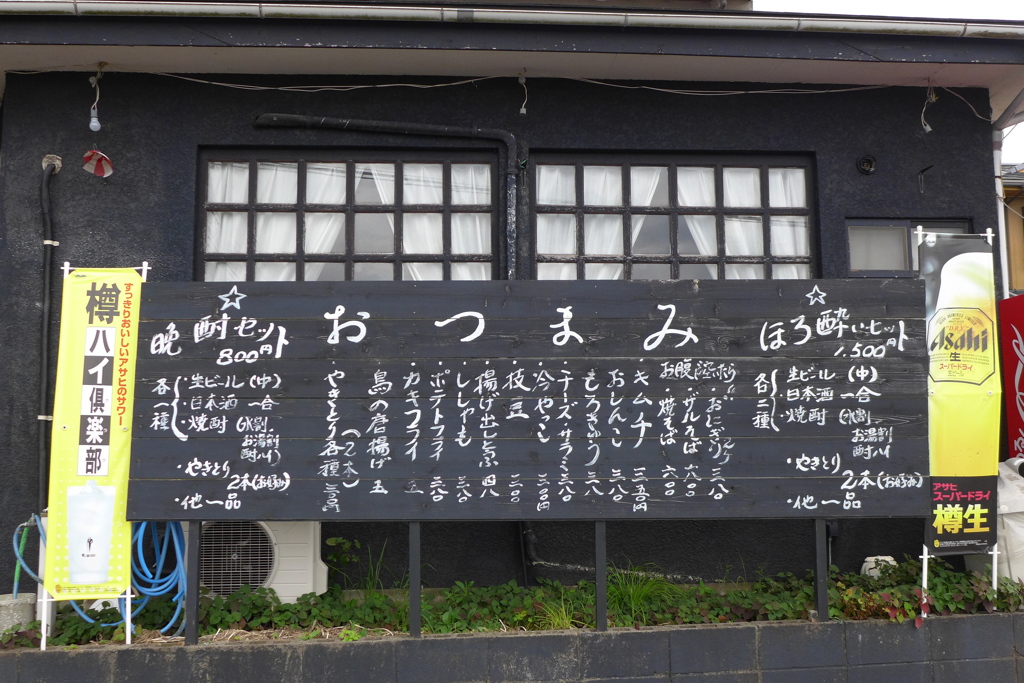 すっきりおいしいアサヒのサワー
樽ハイ倶楽部
☆
晩酌セット
800円
各一種
・生ビール (中)
・日本酒 一合
・焼酎 (水割
お湯割
酎ハイ)
・やきとり
2本(お好み)
・他一品
おつまみ
お腹
・おにぎり
・ザルそば 六八〇
・焼そば 六〇〇
・キムチ 三五〇円
・おしんこ 三八〇
・もろきゅう 三八〇
・チーズサラミ 三八〇
・冷やっこ 三〇〇円
・枝豆 三〇〇
・揚げ出しとうふ
・ししゃも 三八〇
・ポテトフライ 三八〇
・カキフライ
・鳥の唐揚げ
・やきとり各種 (2本) 三〇〇円
☆
ほろ酔いセット
1,500円
各二種
・生ビール (中)
・日本酒 一合
・焼酎 (水割
お湯割
酎ハイ)
・やきとり
2本(お好み)
・他一品
Asahi
生
スーパードライ
アサヒ
スーパードライ
樽生